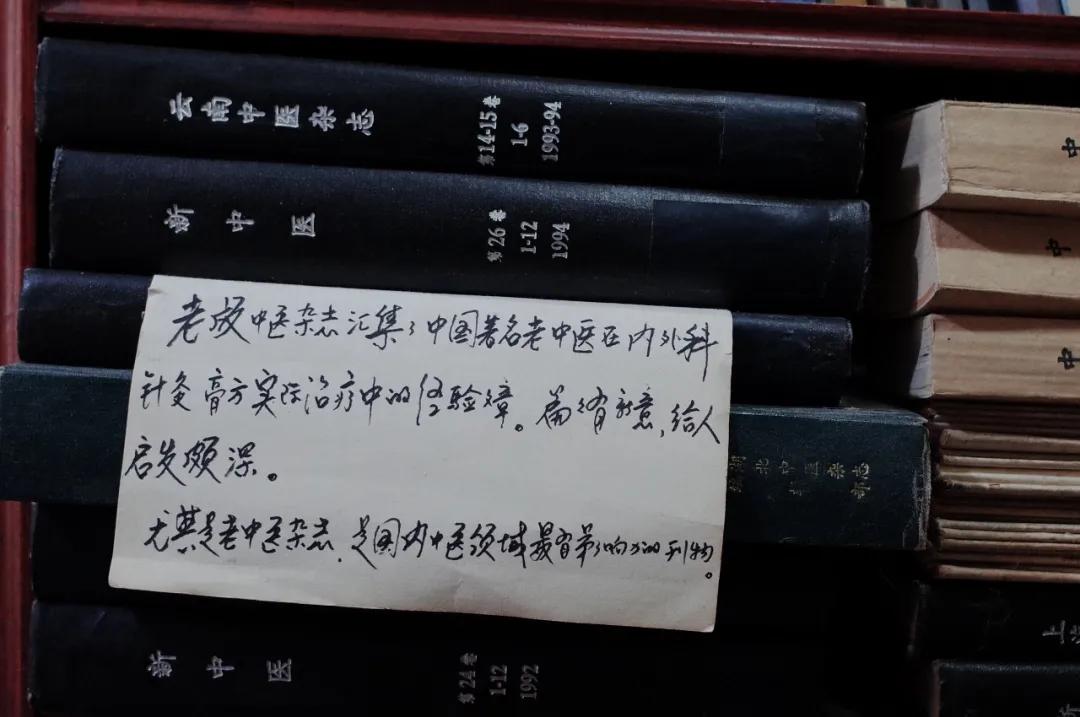 云南中医杂志
第14-15卷
1-6
1993-94
新中医
第26卷
1-12
1994
老版中医杂志汇集了中国著名老中医在内外科
针灸膏方实际治疗中的经验文章。篇篇有新意,给人
启发颇深。
尤其是老中医杂志,是国内中医领域最有影响力的刊物。
湖北中医杂志
新中医
第24卷
1-12
1992
中
中
中
上